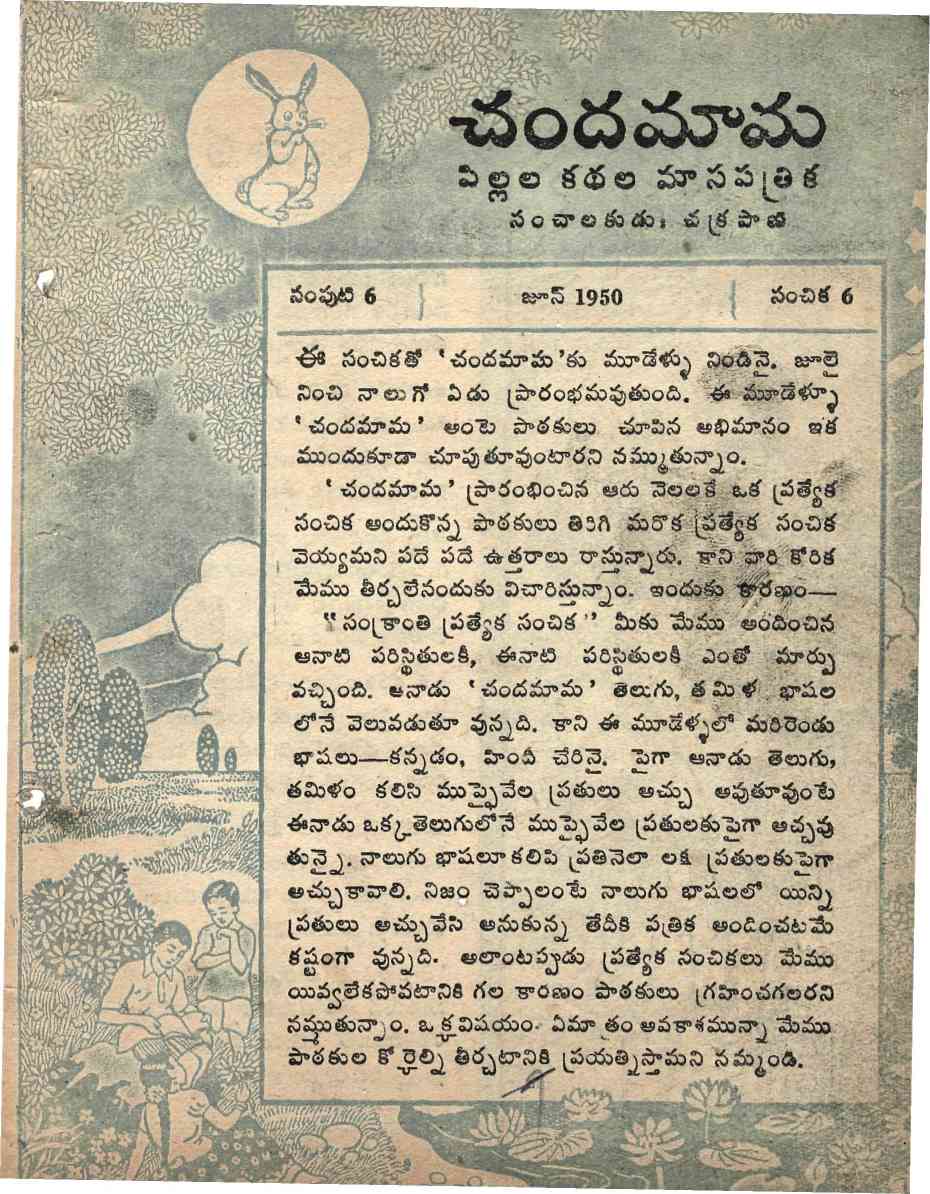 చందమామ
పిల్లల కథల మాసపత్రిక
సంచాలకుడు: చక్రపాణి
సంపుటి 6 జూన్ 1950 సంచిక 6
ఈ సంచికతో ‘చందమామ’కు మూడేళ్ళు నిండినై. జూలై
నించి నాలుగో ఏడు ప్రారంభమవుతుంది. ఈ మూడేళ్ళూ
‘చందమామ’ అంటె పాఠకులు చూపిన అభిమానం ఇక
ముందుకూడా చూపుతూవుంటారని నమ్ముతున్నాం.
‘చందమామ’ ప్రారంభించిన ఆరు నెలలకే ఒక ప్రత్యేక
సంచిక అందుకొన్న పాఠకులు తిరిగి మరొక ప్రత్యేక సంచిక
వెయ్యమని పదే పదే ఉత్తరాలు రాస్తున్నారు. కాని వారి కోరిక
మేము తీర్చలేనందుకు విచారిస్తున్నాం. ఇందుకు కారణం—
“సంక్రాంతి ప్రత్యేక సంచిక” మీకు మేము అందించిన
ఆనాటి పరిస్థితులకీ, ఈనాటి పరిస్థితులకీ ఎంతో మార్పు
వచ్చింది. ఆనాడు ‘చందమామ’ తెలుగు, తమిళ భాషల
లోనే వెలువడుతూ వున్నది. కాని ఈ మూడేళ్ళలో మరిరెండు
భాషలు—కన్నడం, హిందీ చేరినై. పైగా ఆనాడు తెలుగు,
తమిళం కలిసి ముప్ఫైవేల ప్రతులు అచ్చు అవుతూవుంటే
ఈనాడు ఒక్క తెలుగులోనే ముప్ఫైవేల ప్రతులకుపైగా అచ్చవు
తున్నై. నాలుగు భాషలూ కలిపి ప్రతినెలా లక్ష ప్రతులకుపైగా
అచ్చుకావాలి. నిజం చెప్పాలంటే నాలుగు భాషలలో యిన్ని
ప్రతులు అచ్చువేసి అనుకున్న తేదీకి పత్రిక అందించటమే
కష్టంగా వున్నది. అలాంటప్పుడు ప్రత్యేక సంచికలు మేము
యివ్వలేకపోవటానికి గల కారణం పాఠకులు గ్రహించగలరని
నమ్ముతున్నాం. ఒక్కవిషయం. ఏమాత్రం అవకాశమున్నా మేము
పాఠకుల కోర్కెల్ని తీర్చటానికి ప్రయత్నిస్తామని నమ్మండి.